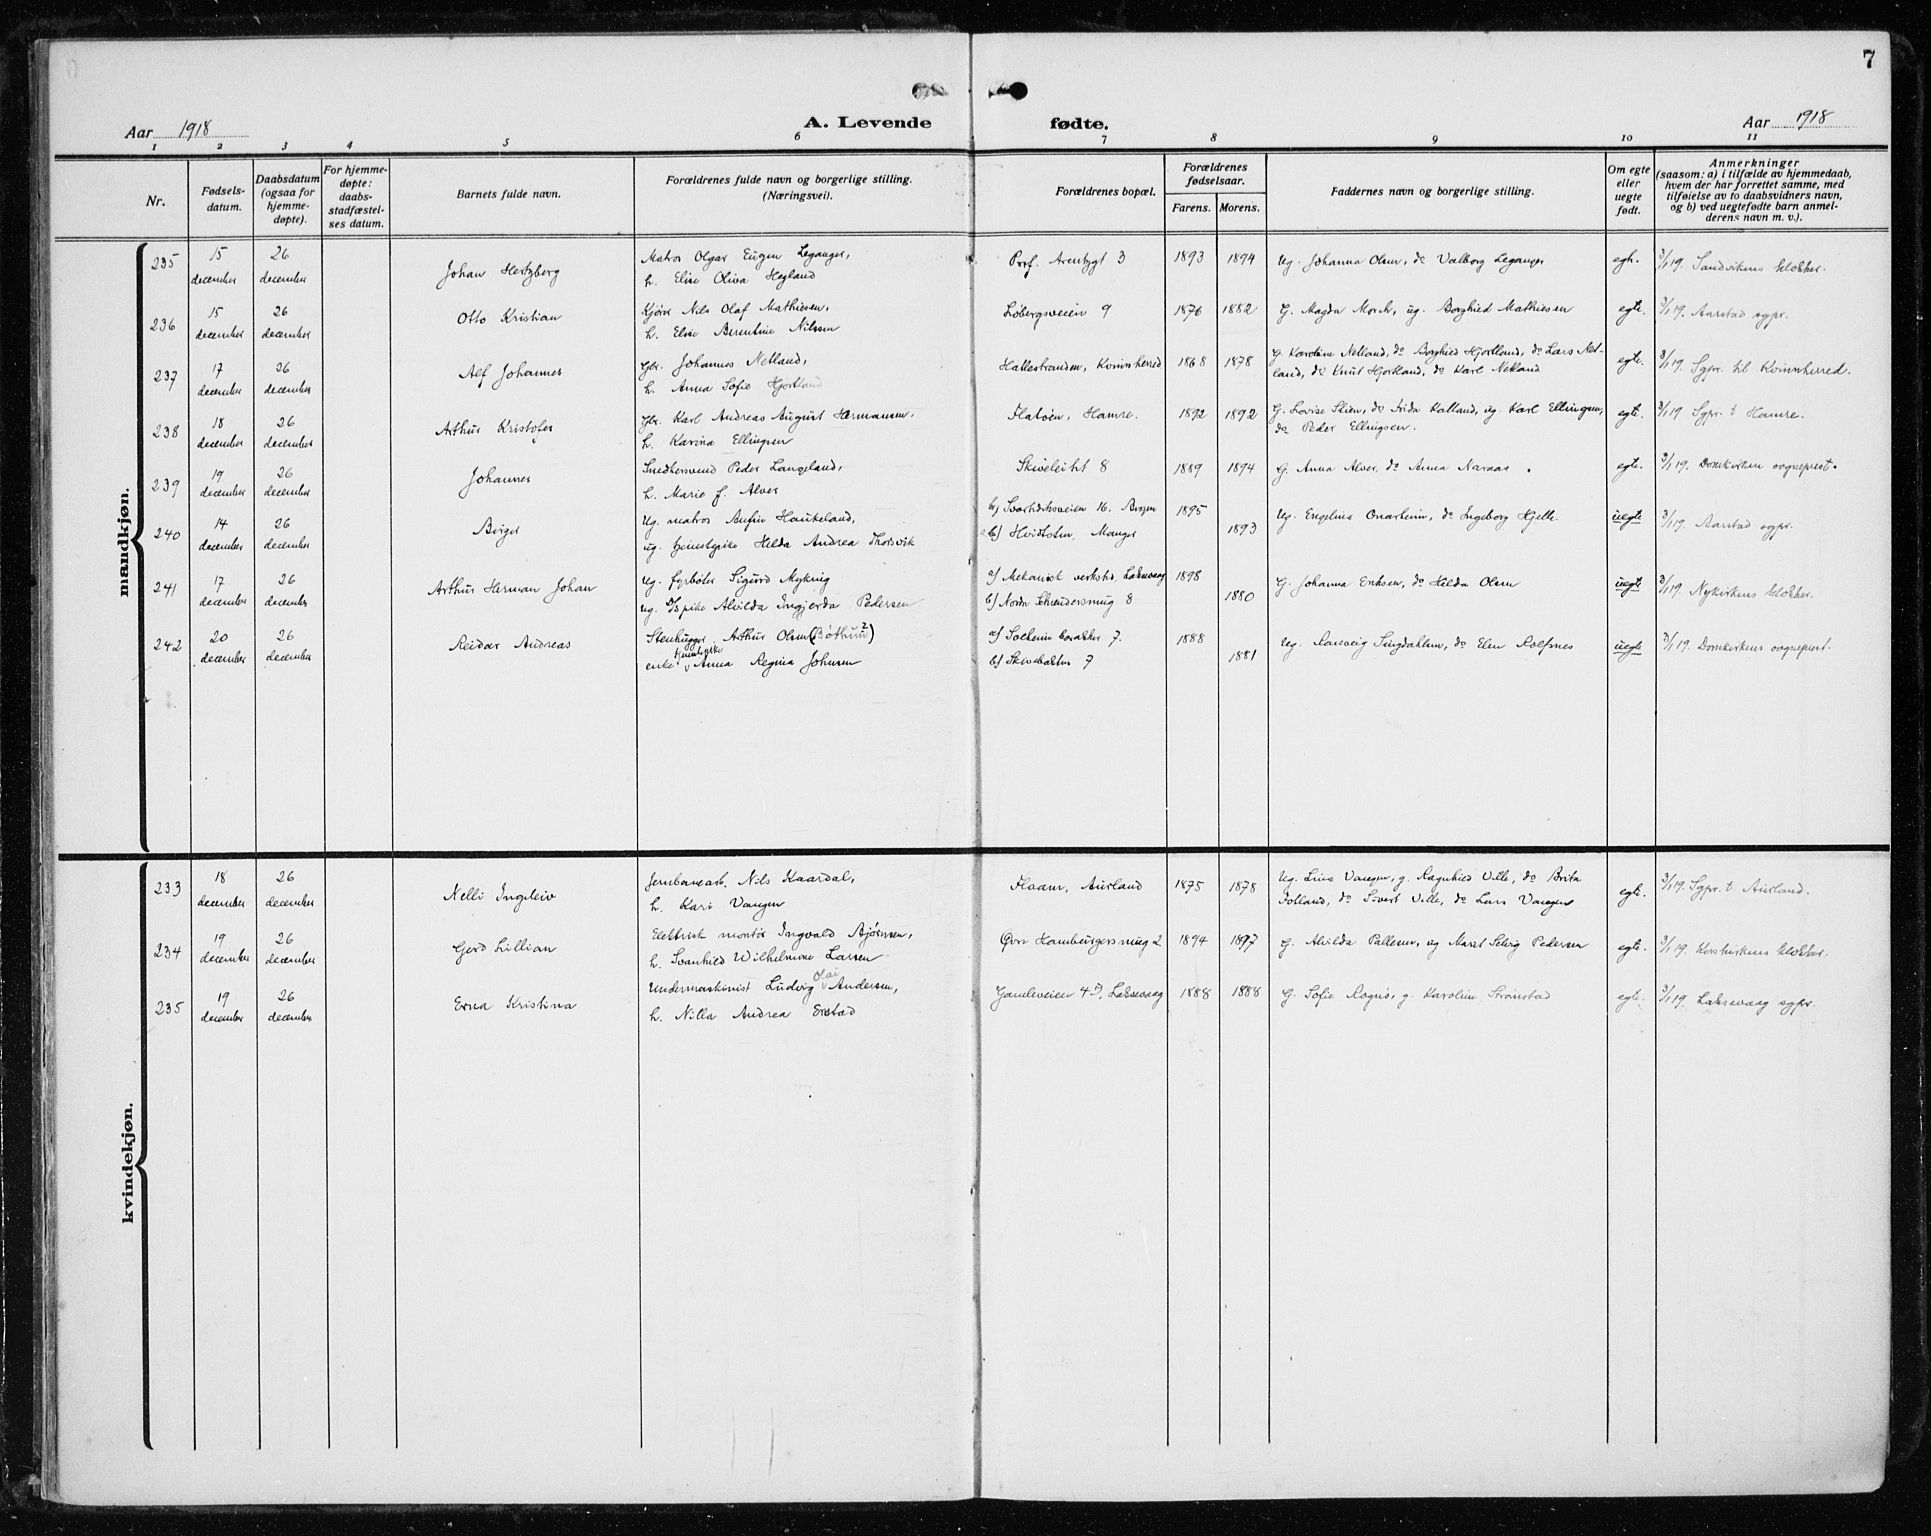 7
Aar 1918
A. Levende
fødte.
Aar 1918
1 2 3 4 5 6 7 8 9 10 11
Nr.
Fødsels-
datum.
Daabsdatum
(ogsaa for
hjemme-
døpte).
For hjemme-
døpte:
daabs-
stadfæstel-
ses datum.
Barnets fulde navn.
Forældrenes fulde navn og borgerlige stilling.
(Næringsvei).
Forældrenes bopæl.
Forældrenes
fødselsaar.
Farens. Morens.
Faddernes navn og borgerlige stilling.
Om egte
eller
uegte
født.
Anmerkninger
(saasom: a) i tilfælde av hjemmedaab,
hvem der har forrettet samme, med
tilføielse av to daabsvidners navn,
og b) ved uegtefødte barn anmel-
derens navn m. v.).
mandkjøn.
235 15 december 26 december Johan Hertzberg
Matros Olgar Eugen Leganger,
h. Elise Oliva Hegland
Prof. Arentzgt 3 1893 1894
Ug. Johanna Olsen, do Valborg Leganger
egte. 3/1 19. Sandvikens klokker.
236 15 december 26 december Otto Kristian
Kjører Nils Olaf Mathiesen,
h. Elise Berentine Nilssen
Løbergsveien 9 1876 1882
G. Magda Morch, ug. Borghild Mathiesen
egte. 3/1 19. Aarstad sgpr.
237 17 december 26 december Alf Johannes
Gbr. Johannes Netland,
h. Anna Sofie Hjortland
Hattestranden, Kvinnherred 1868 1878
G. Karoline Netland, do Borghild Hjortland, do Lars Net-
land, do Knut Hjortland, do Karl Netland
egte. 3/1 19. Sgpr. til Kvinnherred.
238 18 december 26 december Arthur Kristofer
Gbr. Karl Andreas August Hermansen,
h. Karina Ellingsen
Flatøen, Hamre. 1892 1892
G. Lovise Skien, do Frida Kalland, ug. Karl Ellingsen,
do Peder Ellingsen.
egte. 3/1 19 Sgpr. t Hamre.
239 19 december 26 december Johannes
Smedsvend Peder Langeland,
h. Marie f. Alver
Skiveleitet 8 1889 1894
G. Anna Alver, do Anna Naraas.
egte. 3/1 19. Domkirken sogneprest.
240 14 december 26 december Birger
Ug. matros Anfin Haukeland,
ug. tjenestepike Helda Andrea Thorsvik
16. Bergen 1895
b) Hvidsten, Manger 1893
Ug. Engelina Onarheim, do Ingeborg Hjelle.
uegte 3/1 19. Aarstad sgpr.
241 17 december 26 december Arthur Herman Johan
Ug. fyrbøter Sigurd Myking
ug. Alvilda Ingjerda Pedersen
a) Mekanisk verksted, Laksevaag 1898
b) Nordre Skrædersmug 8 1880
G. Johanna Eriksen, do Hilda Olsen
uegte 3/1 19. Nykirkens klokker.
242 20 december 26 december Reidar Andreas
Stenhugger Arthur Olsen (Bøthun?)
tjenestepike
enke Anna Regina Johnsen
a) Solheim 7. 1888
b) Skivebakken 7 1881
Ug. Ranveig Singdahlsen, do Elen Rolfsnes
uegte 3/1 19. Domkirkens sogneprest.
kvindekjøn.
233 18 december 26 december Nelli Ingeleiv
Jernbanearb. Nils Kaardal,
h. Kari Vangen
Flaam, Aurland 1875 1878
Ug. Lina Vangen, g. Ragnhild Ville, do Brita
Fotland, do Sivert Ville, do Lars Vangen
egte. 3/1 19 Sgpr. t Aurland.
234 19 december 26 december Gerd Lillian
Elektrisk montør Ingvald Bjørnsen,
h. Svanhild Wilhelmine Larsen
Øvre Hamburgersmug 2 1894 1897
G. Alvilda Pallesen, ug Marit Selvig Pedersen
egte. 3/1 19. Korskirkens klokker.
235 19 december 26 december Erna Kristina
Undermaskinist Ludvig Olai Andersen,
h. Nilla Andrea Erstad
Gamleveien 4D, Laksevaag 1888 1888
G. Sofie Rognø, g. Karoline Strømstad
egte. 3/1 19. Laksevaag sgpr.